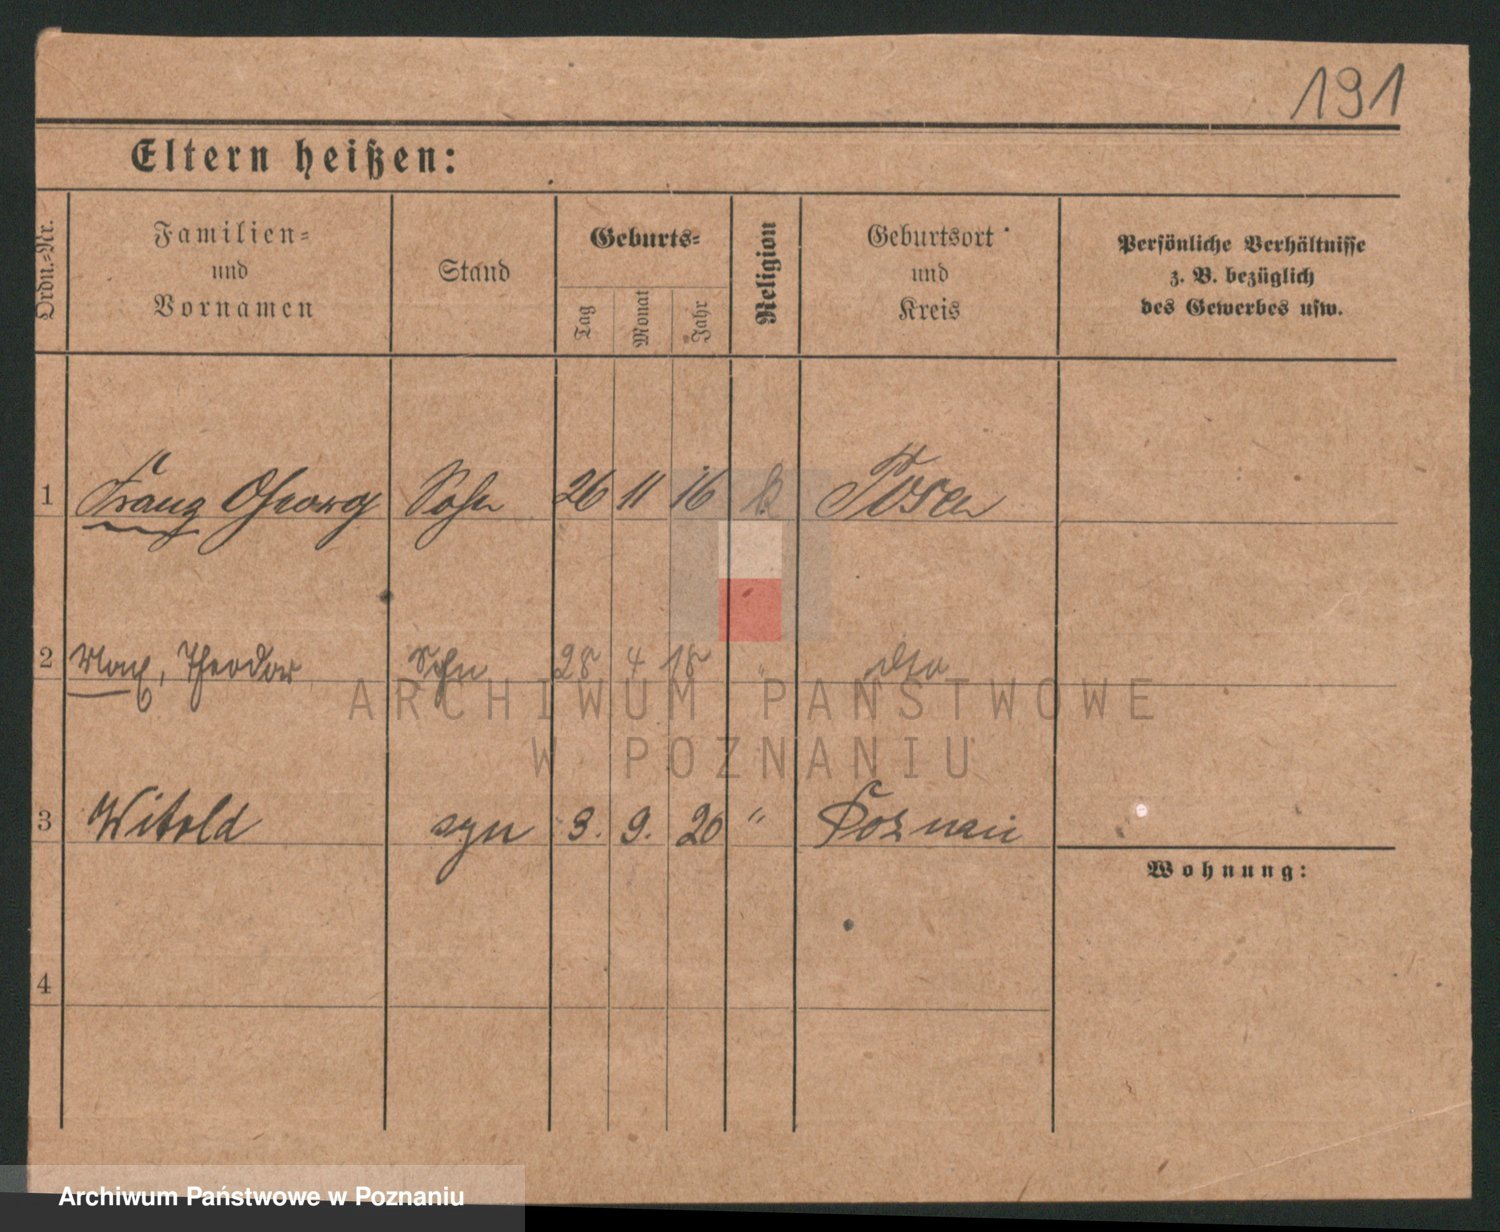 191
Eltern heißen:
Ordn.-Nr.
Familien-
und
Vornamen
Stand
Geburts-
Tag
Monat
Jahr
Religion
Geburtsort
und
Kreis
Persönliche Verhältnisse
z. B. bezüglich
des Gewerbes usw.
1 Franz Georg Sohn 26 11 16 k Posen
2 Max, Theodor Sohn 28 4 18 " dto
3 Witold syn 3. 9. 20 " Poznań
Wohnung:
4
ARCHIWUM PAŃSTWOWE
W POZNANIU
Archiwum Państwowe w Poznaniu